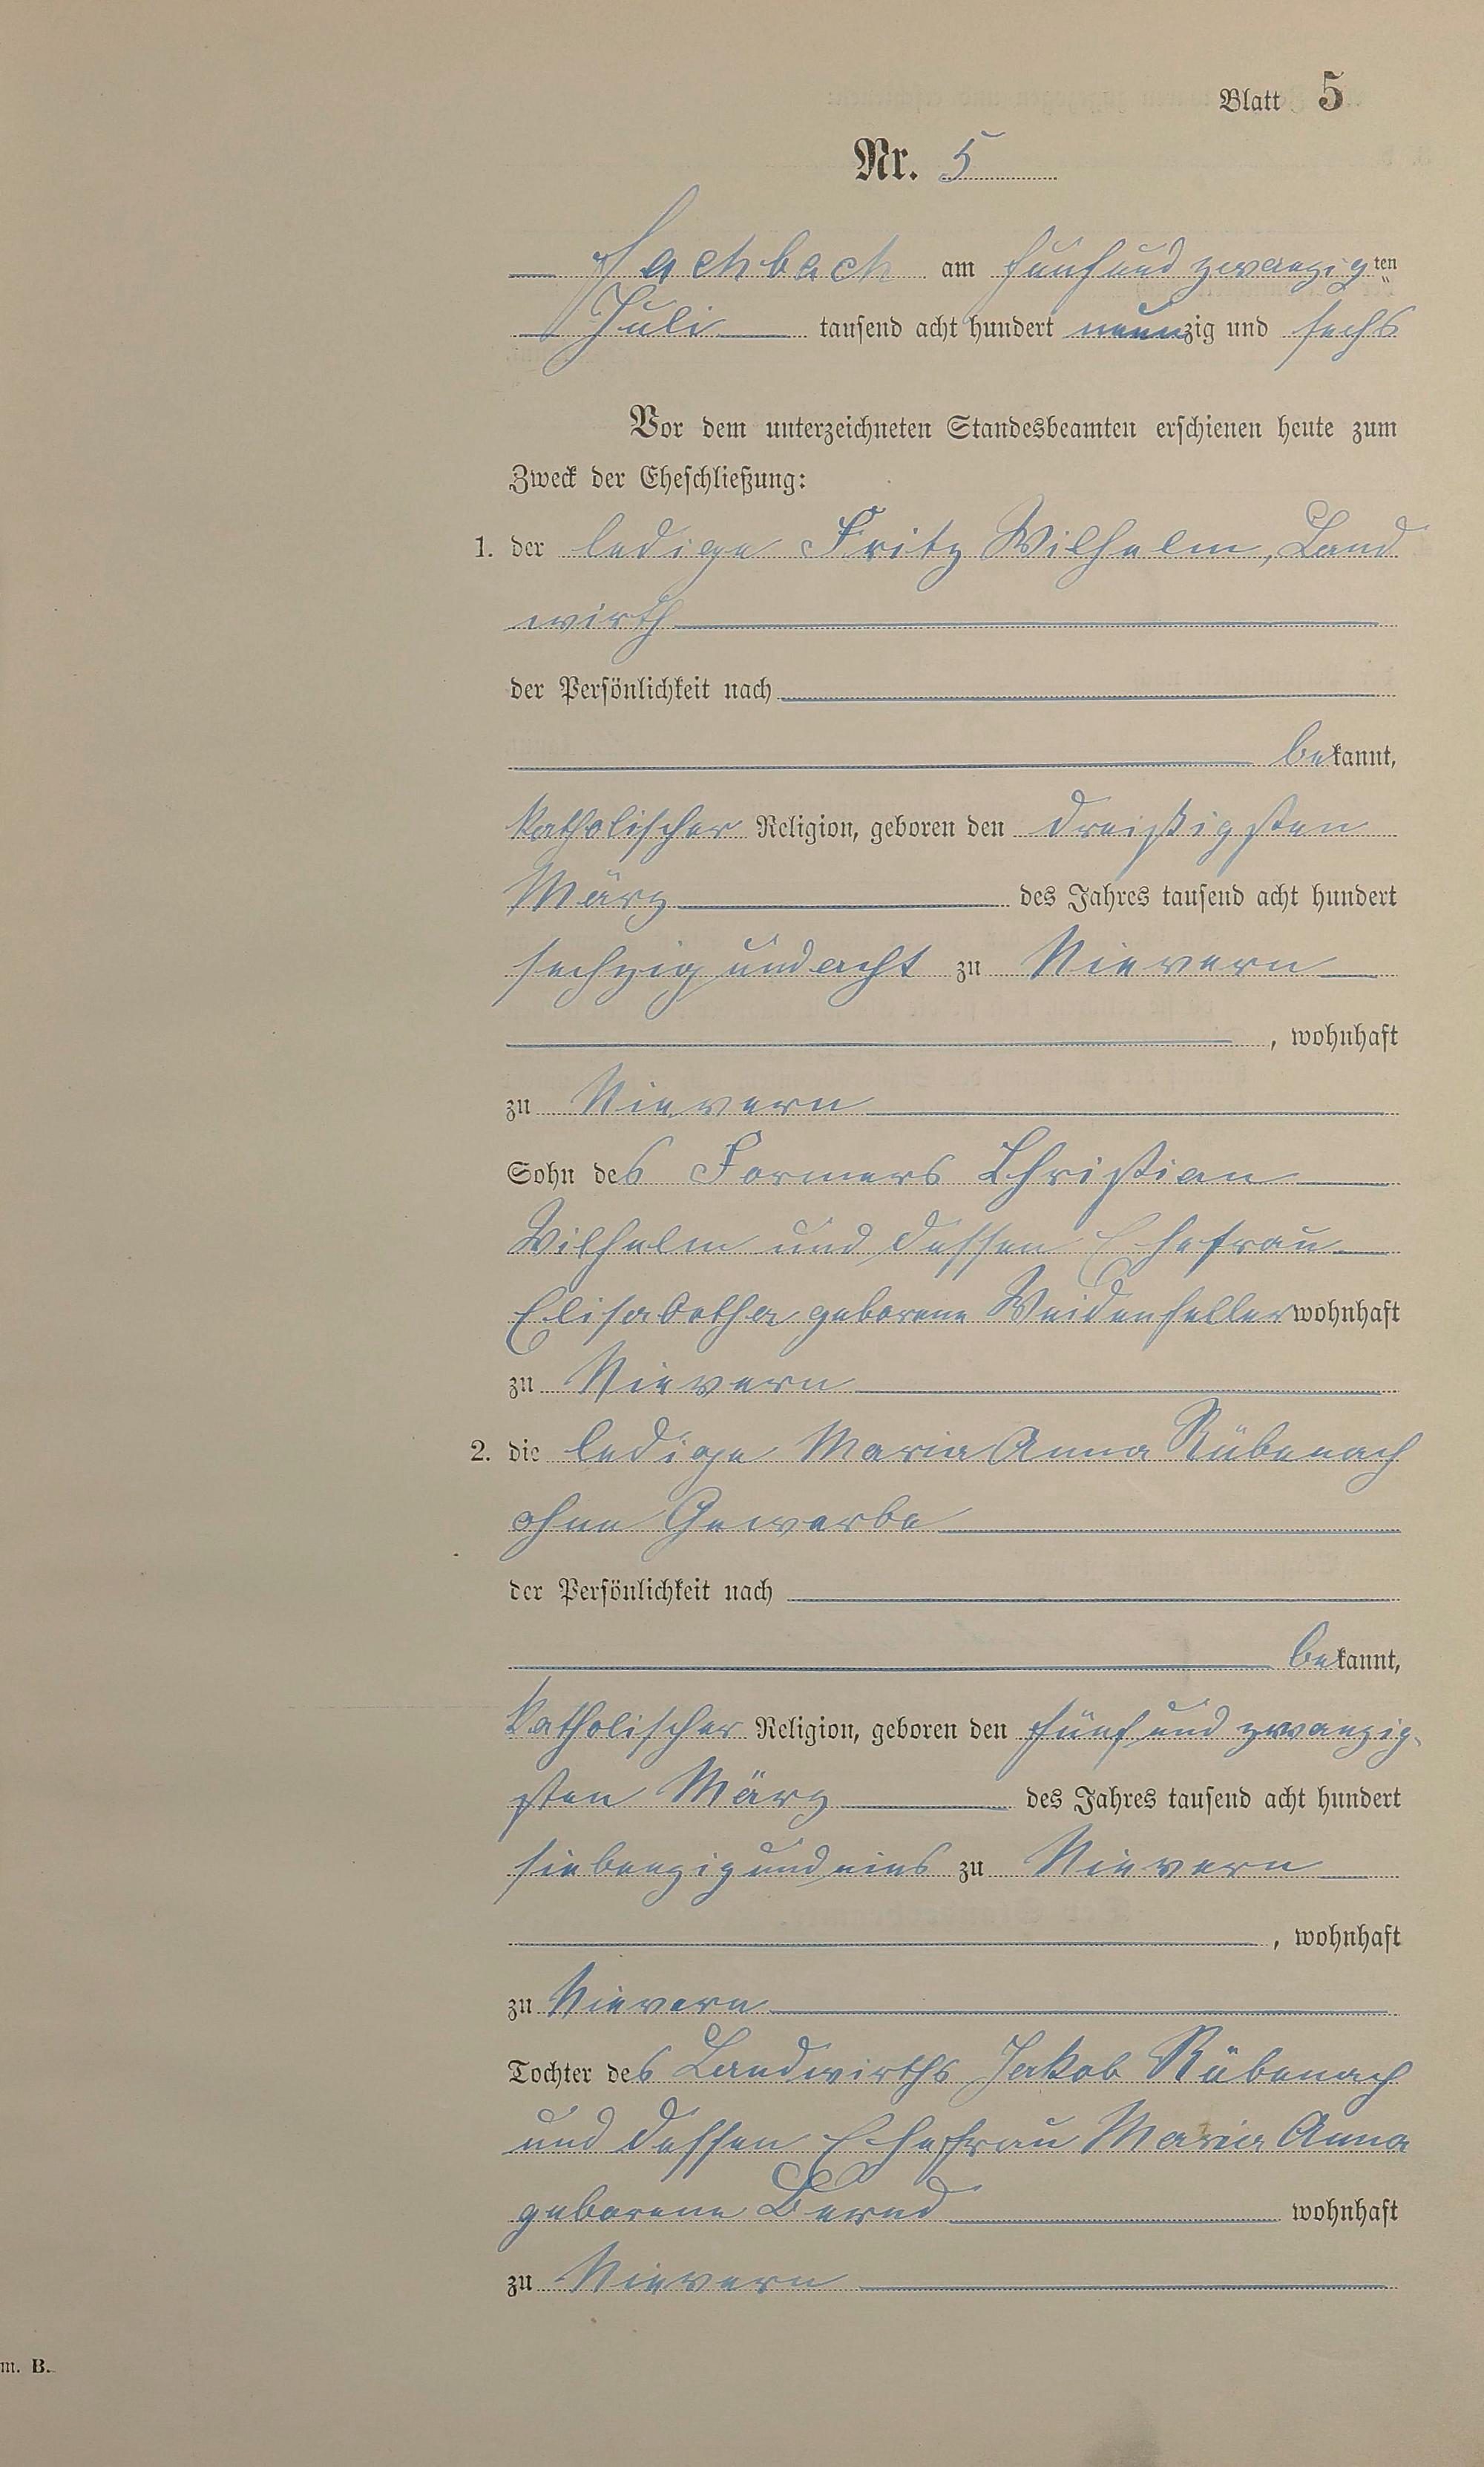 Blatt 5
Nr. 5
Fachbach am fünfundzwanzigten
Juli tausend acht hundert neunzig und sechs
Vor dem unterzeichneten Standesbeamten erschienen heute zum
Zweck der Eheschließung:
1. der ledige Fritz Wilhelm, Land
wirth
der Persönlichkeit nach
bekannt,
katholischer Religion, geboren den dreißigsten
März des Jahres tausend acht hundert
sechzig und acht zu Nievern
, wohnhaft
zu Nievern
Sohn des Formers Christian
Wilhelm und dessen Ehefrau
Elisabetha geborene Weidenfeller wohnhaft
zu Nievern
2. die ledige Maria Anna Rübenach
ohne Gewerbe
der Persönlichkeit nach
bekannt,
katholischer Religion, geboren den fünf und zwanzig-
sten März des Jahres tausend acht hundert
siebenzig und eins zu Nievern
, wohnhaft
zu Nievern
Tochter des Landwirths Jakob Rübenach
und dessen Ehefrau Maria Anna
geborene Bernd wohnhaft
zu Nievern
m. B.